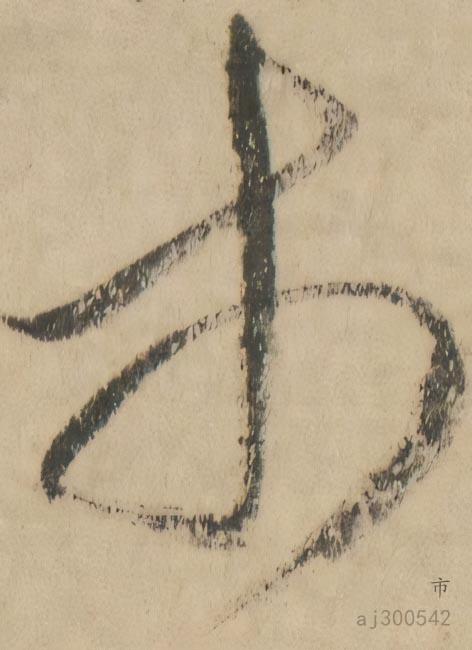 市
市
aj300542